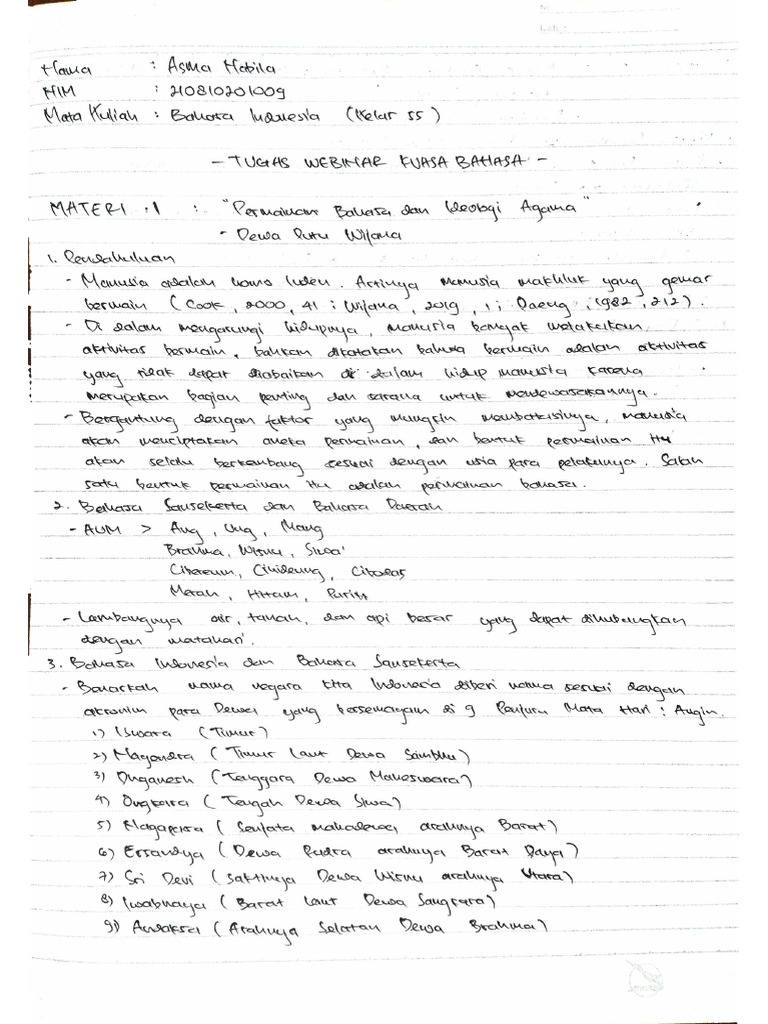 No.
Date:
Nama : Asma Nabila
NIM : 210810201009
Mata Kuliah : Bahasa Indonesia (Kelar 55)
- TUGAS WEBINAR KUASA BAHASA -
MATERI 1 : "Permainan Bahasa dan Ideologi Agama"
- Dewa Putu Wijana
1. Pendahuluan
- Manusia adalah homo luden. Artinya manusia makhluk yang gemar
bermain (Cook, 2000, 41 ; Wijana, 2019, 1 ; Daeng, 1982, 212).
- Di dalam mengarungi hidupnya, manusia banyak melakukan
aktivitas bermain, bahkan dikatakan bahwa bermain adalah aktivitas
yang tidak dapat diabaikan di dalam hidup manusia karena
merupakan bagian penting dan sarana untuk mendewasakannya.
- Bergantung dengan faktor yang mungkin membatasinya, manusia
akan menciptakan aneka permainan, dan bentuk permainan itu
akan selalu berkembang sesuai dengan usia para pelakunya. Salah
satu bentuk permainan itu adalah permainan bahasa.
2. Bahasa Sansekerta dan Bahasa Daerah
- AUM > Ang, Ung, Mang
Brahma, Wisnu, Siwa
Citereum, Cihideung, Cibodas
Merah, Hitam, Putih
- Lambangnya air, tanah, dan api besar yang dapat dihubungkan
dengan matahari.
3. Bahasa Indonesia dan Bahasa Sansekerta
- Bahkan nama negara kita Indonesia diberi nama sesuai dengan
akronim para Dewa yang bersemayam di 9 Penjuru Mata Hari : Angin.
1) Iswara (Timur)
2) Nagendra (Timur Laut Dewa Sambhu)
3) Onganesh (Tenggara Dewa Maheswara)
4) Ongkara (Tengah Dewa Siwa)
5) Nagapasa (Senjata mahadewa arahnya Barat)
6) Ersandya (Dewa Rudra arahnya Barat Daya)
7) Sri Devi (Saktinya Dewa Wisnu arahnya Utara)
8) (Barat Laut Dewa Sangkara)
9) (Arahnya Selatan Dewa Brahma)